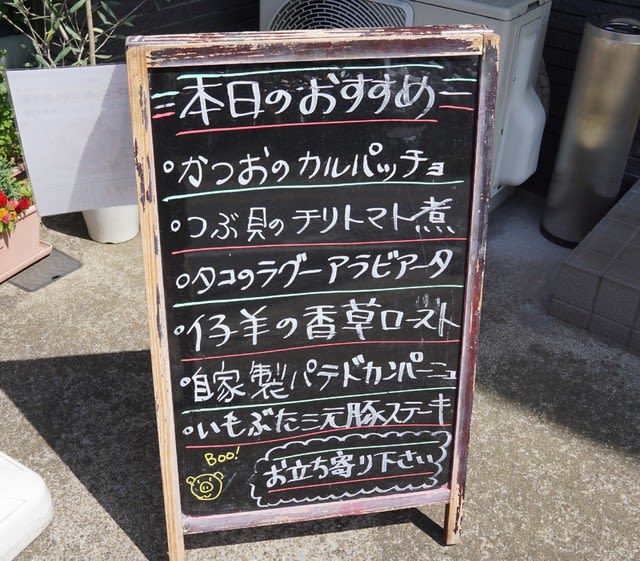 本日のおすすめ
・かつおのカルパッチョ
・つぶ貝のチリトマト煮
・タコのラグーアラビアータ
・仔羊の香草ロースト
・自家製パテドカンパーニュ
・いもぶた三元豚ステーキ
Boo!
お立ち寄り下さい